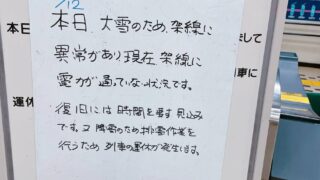 1/12
本日、大雪のため、架線に
異常があり現在、架線に
電力が通っていない状況です。
復旧には時間を要す見込み
です。又、降雪のため排雪作業を
行うため、列車の運休が発生します。
本日
運休
して
車に